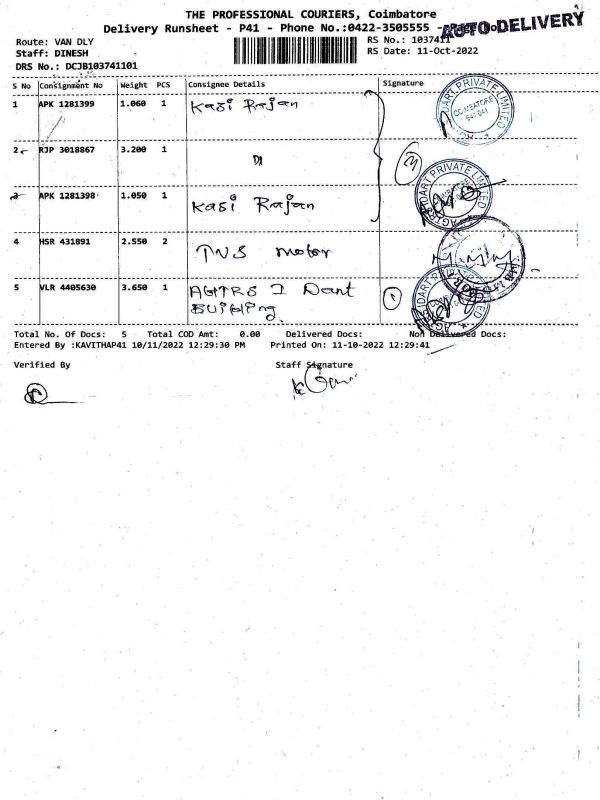 THE PROFESSIONAL COURIERS, Coimbatore
Delivery Runsheet - P41 - Phone No.:0422-3505555
AUTO DELIVERY
Route: VAN DLY
RS No.: 1037411
Staff: DINESH
RS Date: 11-Oct-2022
DRS No.: DCJB103741101
S No Consignment No Weight PCS Consignee Details Signature
1 APK 1281399 1.060 1 Kasi Rajan
2 RJP 3018867 3.200 1
3 APK 1281398 1.050 1 Kasi Rajan
4 HSR 431891 2.550 2 TVS motor
5 VLR 4405630 3.650 1
Building
Total No. Of Docs: 5 Total COD Amt: 0.00 Delivered Docs: Non Delivered Docs:
Entered By :KAVITHAP41 10/11/2022 12:29:30 PM Printed On: 11-10-2022 12:29:41
Verified By Staff Signature